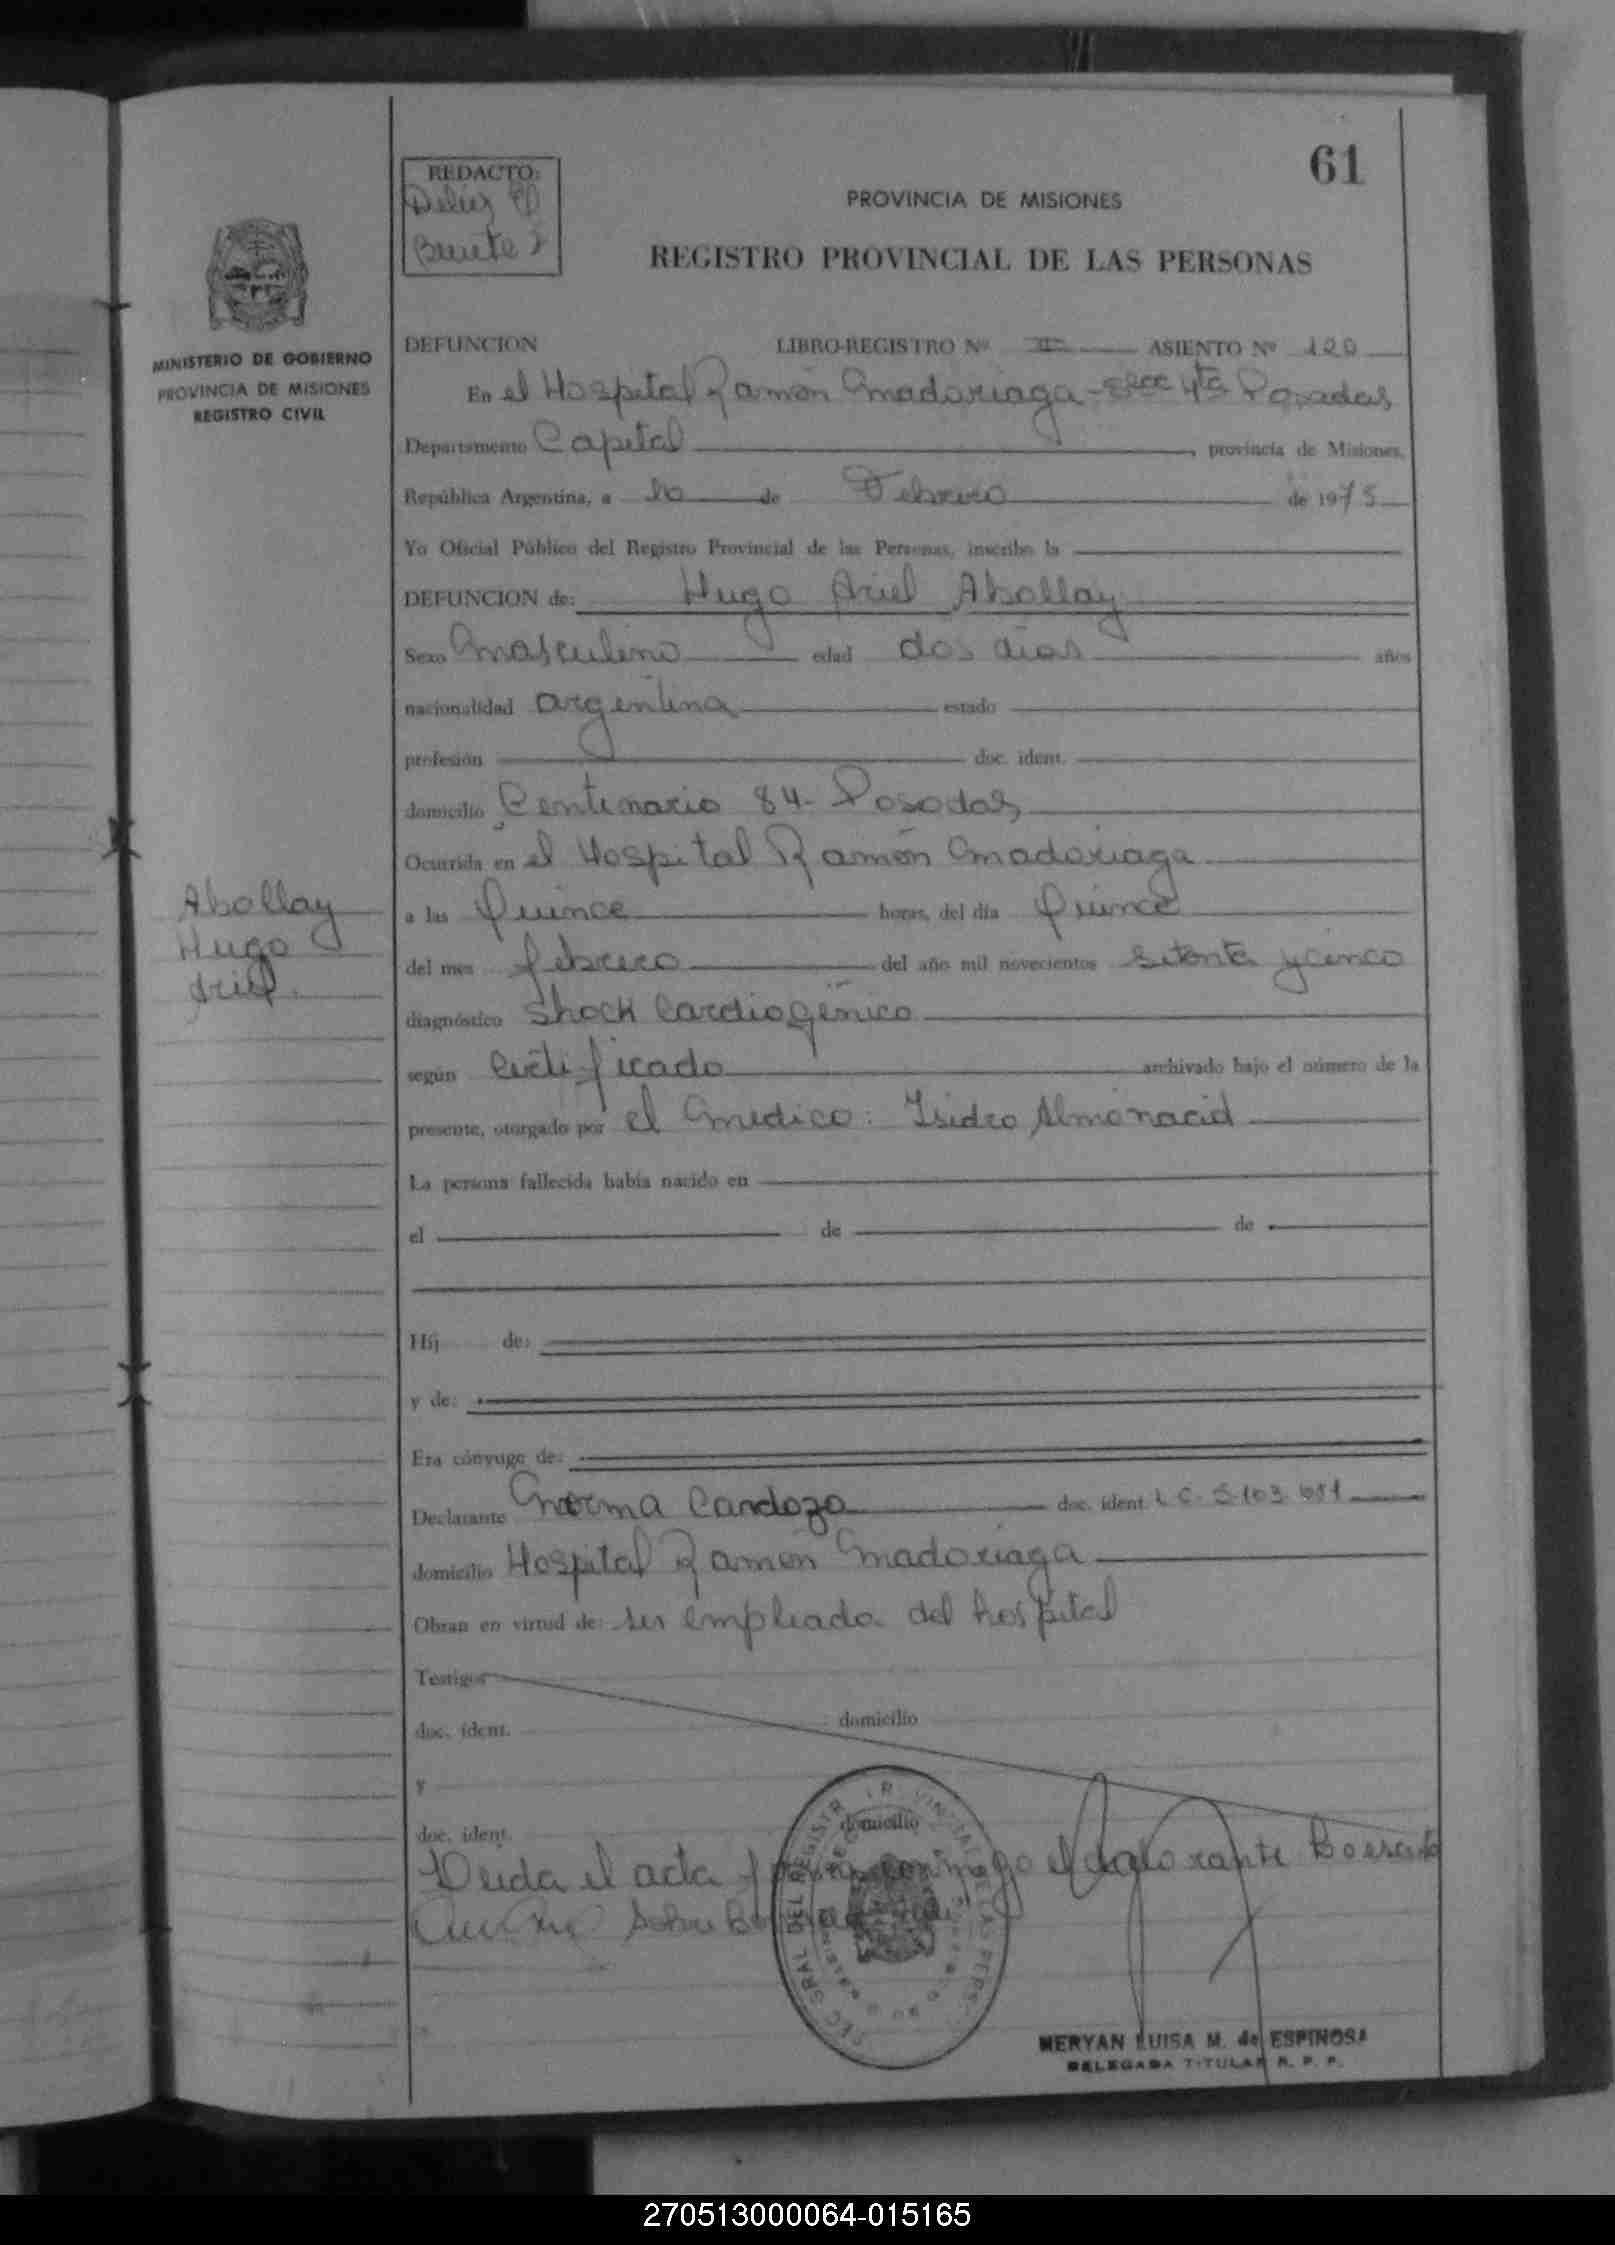 61
REDACTO:
PROVINCIA DE MISIONES
REGISTRO PROVINCIAL DE LAS PERSONAS
MINISTERIO DE GOBIERNO
PROVINCIA DE MISIONES
REGISTRO CIVIL
DEFUNCION LIBRO-REGISTRO Nº II ASIENTO Nº 120
En el Hospital Ramón Madariaga - Secc 4ta Posadas
Departamento Capital, provincia de Misiones,
República Argentina, a 20 de Febrero de 1975
Yo Oficial Público del Registro Provincial de las Personas, inscribo la
DEFUNCION de: Hugo Ariel Abollay
Sexo Masculino edad dos dias años
nacionalidad argentina estado
profesión doc. ident.
domicilio Centenario 84 - Posadas
Ocurrida en el Hospital Ramón Madariaga
Abollay
Hugo
Ariel.
a las Quince horas, del día Quince
del mes febrero del año mil novecientos setenta y cinco
diagnóstico Shock Cardiogénico
según Certificado archivado bajo el número de la
presente, otorgado por el Medico: Isidro Almonacid
La persona fallecida había nacido en
el de de
Hij de:
y de:
Era cónyuge de:
Declarante Norma Cardozo doc. ident. L C. 5.103.651
domicilio Hospital Ramón Madariaga
Obran en virtud de: ser empleada del hospital
Testigos
doc. ident. domicilio
y
doc. ident. domicilio
Leida el acta firma conmigo el declarante
MERYAN LUISA M. de ESPINOSA
DELEGADA TITULAR R. P. P.
270513000064-015165